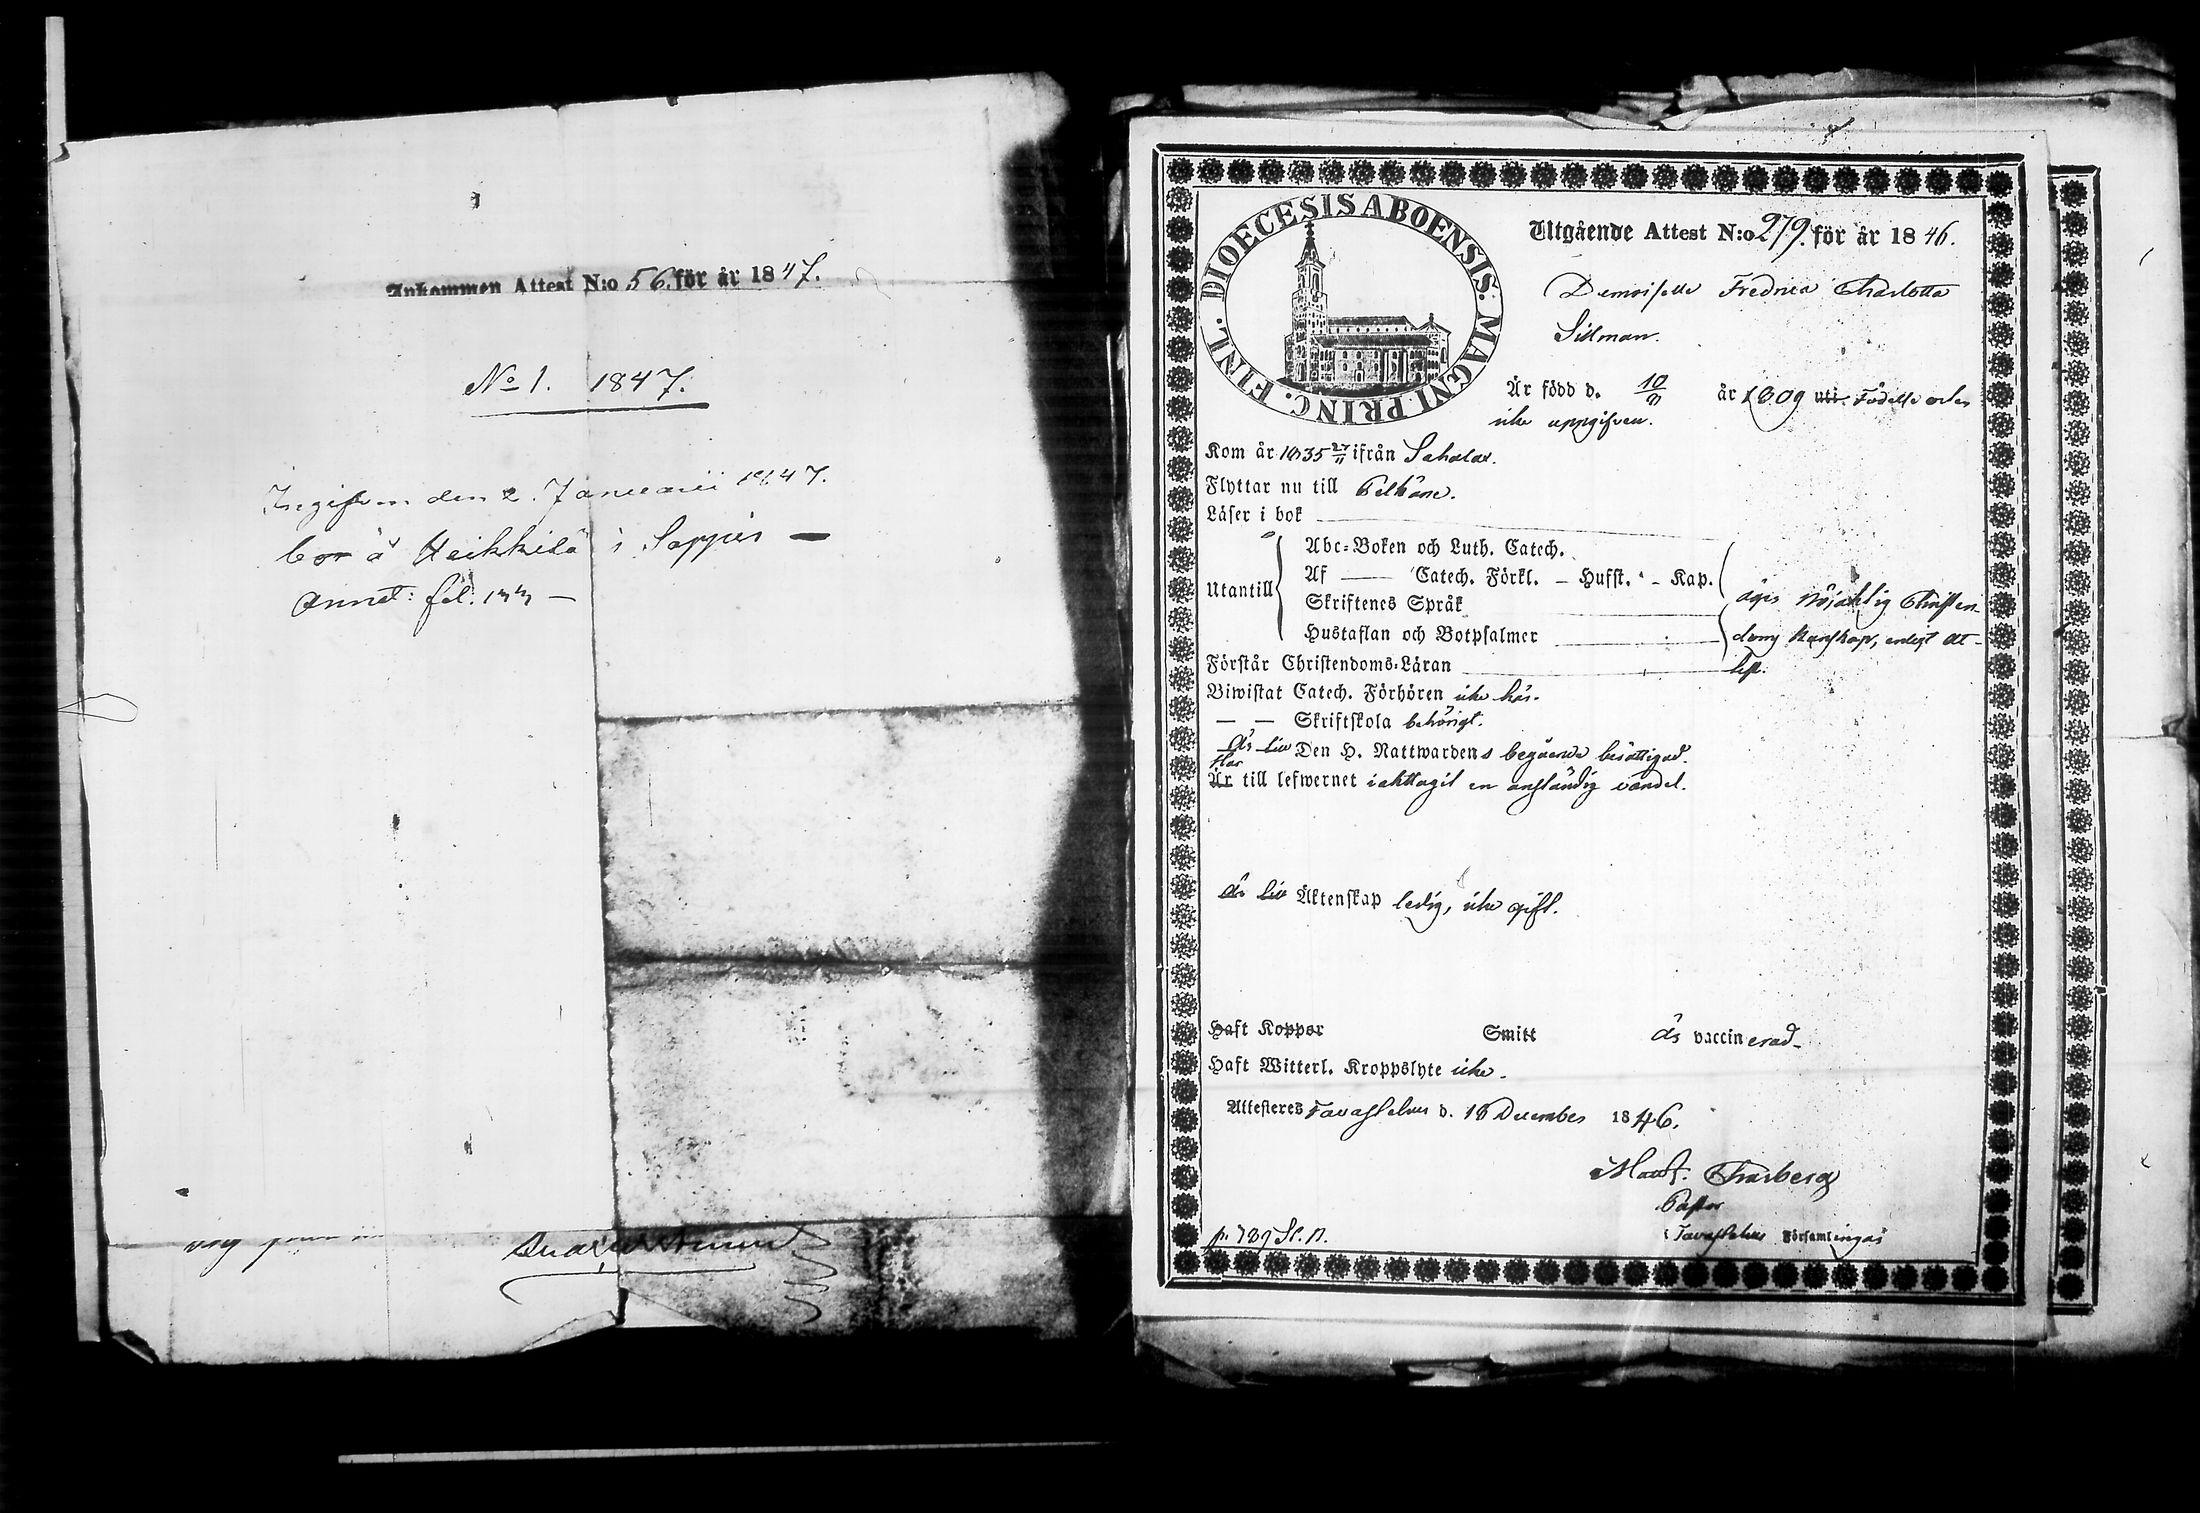 Inkommen Attest N:o 56. för år 1847.
No 1. 1847.
Ingifven den 2. Januarii 1847.
bor å Heikkilä i Sappis —
annot: fol. 177 —
DIOECESIS ABOENSIS. MAGNI PRINC. FINL.
Utgående Attest N:o 279. för år 1846.
Demoiselle Fredrica Charlotta
Sillman.
Är född d. 10/7 år 1809 uti Födelse orten
icke uppgifven.
Kom år 1835 27/11 ifrån Sahalax.
Flyttar nu till Pelkäne.
Läser i bok
Utantill
Abc-Boken och Luth. Catech.
Af — Catech. Förkl. — Husst. — Kap.
Skriftenes Språk
Hustaflan och Botpsalmer
äger nöjaktig Christen-
doms kunskap, enligt at-
test.
Förstår Christendoms-Läran
Biwistat Catech. Förhören icke här.
— — Skriftskola behörigt.
är till Den H. Nattwardens begående berättigad.
Har
Är till lefwernet iakttagit en anständig vandel.
är till Äktenskap ledig, icke gift.
Haft Koppor Smitt är vaccinerad.
Haft Witterl. Kroppslyte icke.
Attesteres Tavastehus d. 18 December 1846.
Pastor
i Tavastehus Församlingar